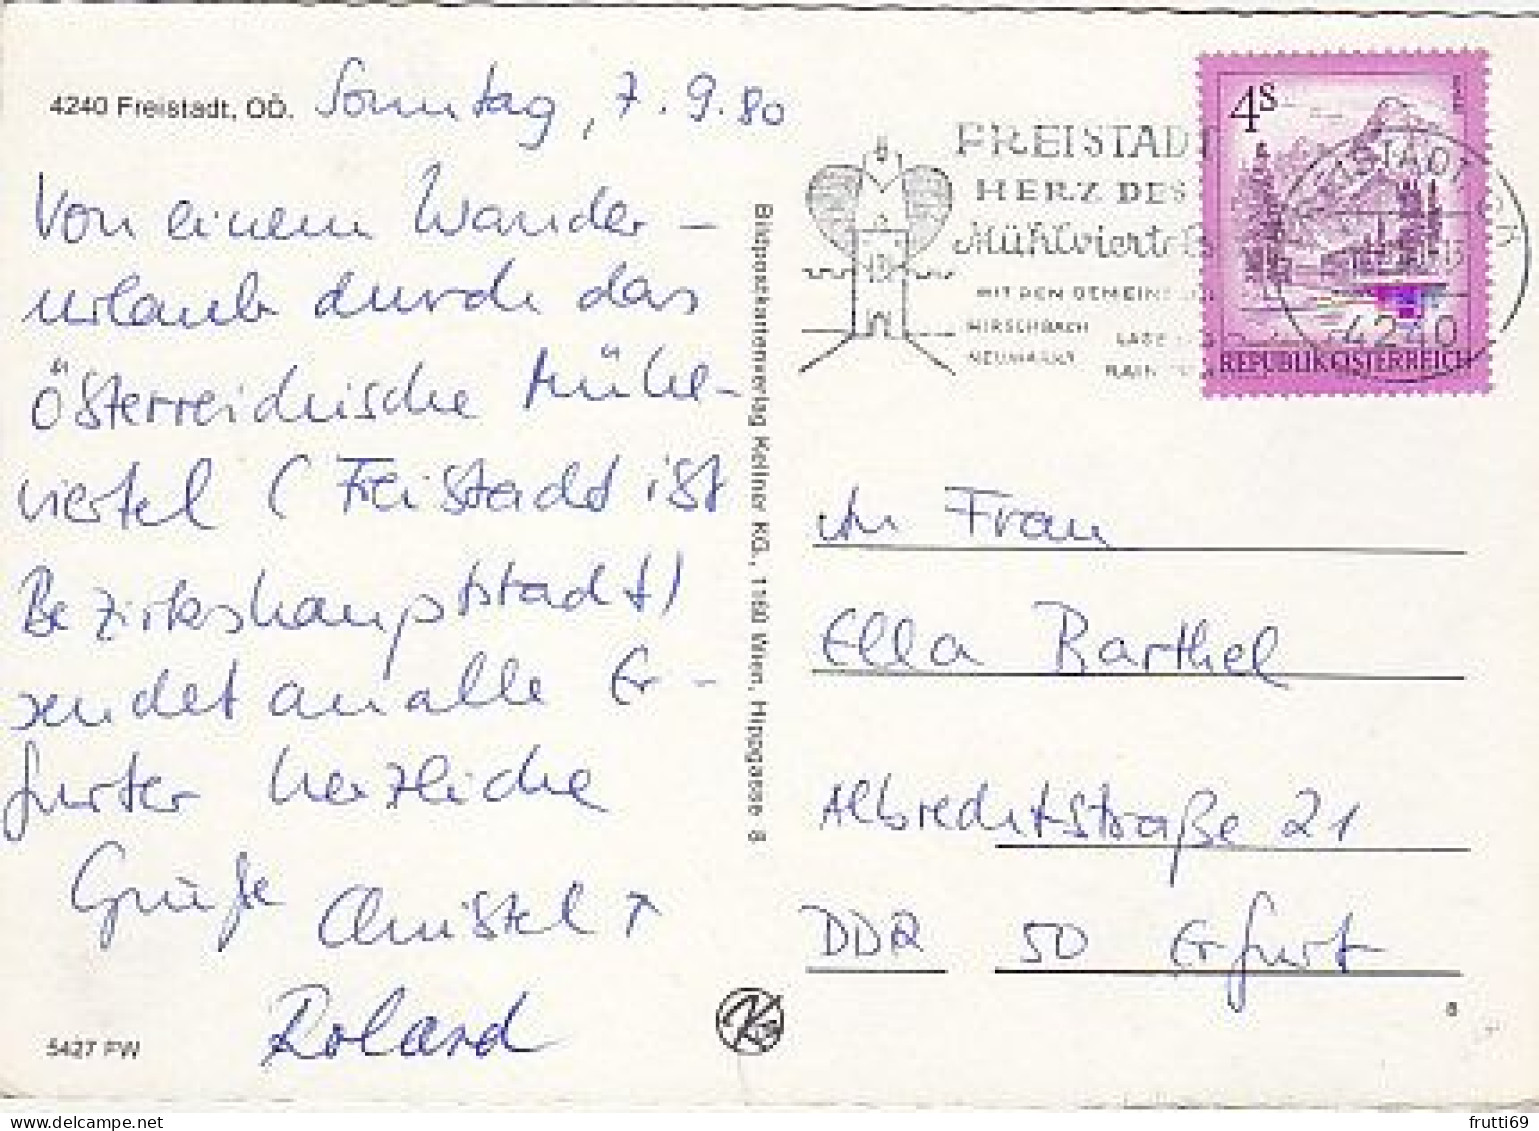 4240 Freistadt, OÖ. Sonntag, 7.9.80
Von einem Wander-
urlaub durch das
Österreichische Mühl-
viertel (Freistadt ist
Bezirkshauptstadt)
sendet an alle Er-
furter herzliche
Grüße Christel +
Roland
5427 PW
Bildpostkartenverlag Kellner KG., 1160 Wien, Hippgasse 8
FREISTADT
HERZ DES
Mühlviertels
MIT DEN GEMEIN
HIRSCHBACH
NEUMARKT
4S
FREISTADT
4240
REPUBLIK ÖSTERREICH
An Frau
Ella Barthel
Albrechtstraße 21
DDR 50 Erfurt
8
K
delcampe.net
frutti69